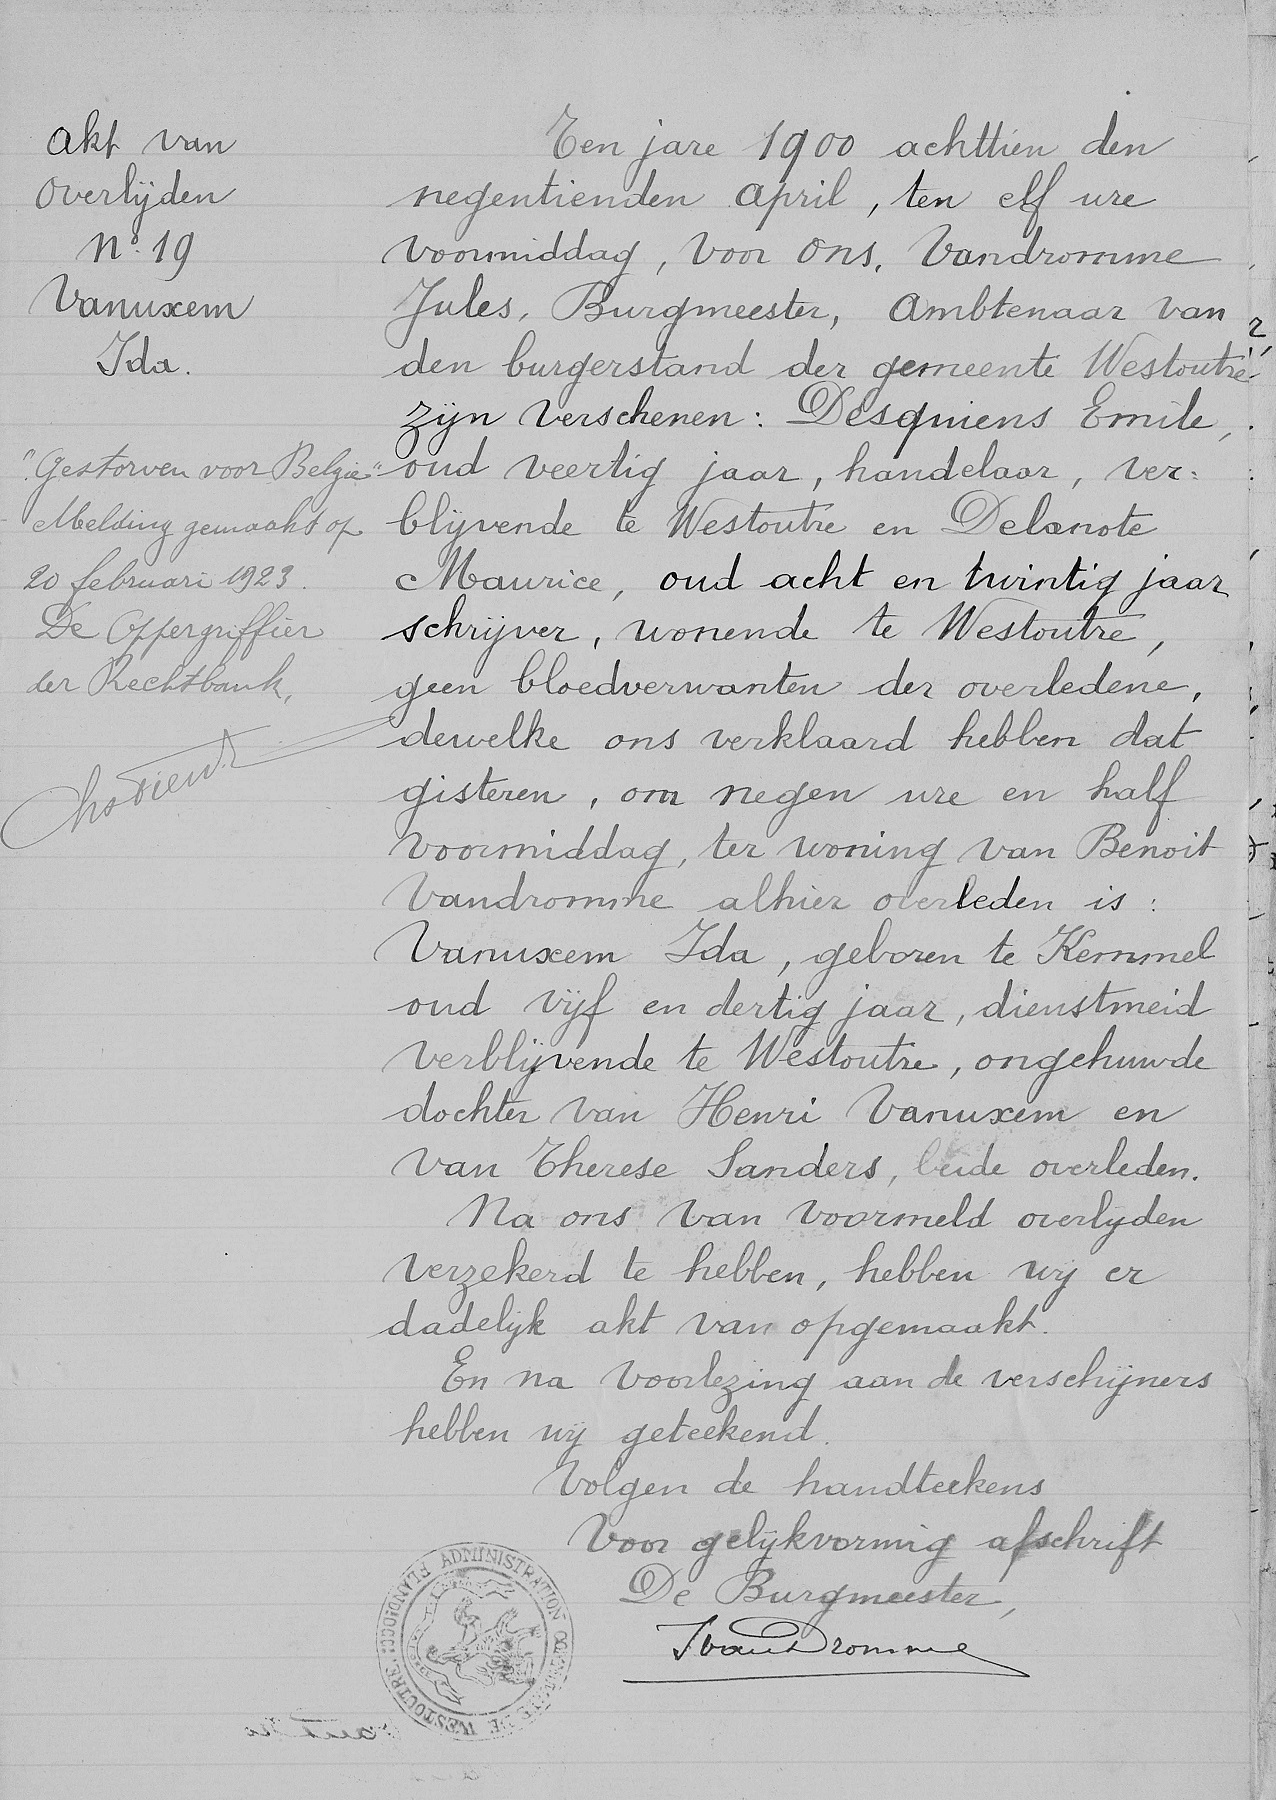 Akt van
Overlijden
N° 19
Vanuxem
Ida.
"Gestorven voor Belgie"
Melding gemaakt op
20 februari 1923.
De Oppergriffier
der Rechtbank,
Ten jare 1900 achttien den
negentienden April, ten elf ure
voormiddag, voor ons, Vandromme
Jules, Burgmeester, Ambtenaar van
den burgerstand der gemeente Westoutre
zijn verschenen: Desquiens Emile,
oud veertig jaar, handelaar, ver=
blijvende te Westoutre en Delanote
Maurice, oud acht en twintig jaar
schrijver, wonende te Westoutre,
geen bloedverwanten der overledene,
dewelke ons verklaard hebben dat
gisteren, om negen ure en half
voormiddag, ter woning van Benoit
Vandromme alhier overleden is:
Vanuxem Ida, geboren te Kemmel
oud vijf en dertig jaar, dienstmeid
verblijvende te Westoutre, ongehuwde
dochter van Henri Vanuxem en
van Therese Sanders, beide overleden.
Na ons van voormeld overlyden
verzekerd te hebben, hebben wij er
dadelijk akt van opgemaakt.
En na voorlezing aan de verschijners
hebben wij geteekend.
Volgen de handteekens
Voor gelijkvormig afschrift
De Burgmeester,
JvanDromme
ADMINISTRATION COMMUNALE DE WESTOUTRE